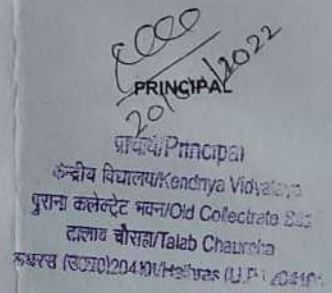 PRINCIPAL
प्राचार्य/Principal
केन्द्रीय विद्यालय/Kendriya Vidyalaya
पुराना कलेक्ट्रेट भवन/Old Collectrate
तालाब चौराहा/Talab Chauraha
हाथरस (उ०प्र०)204101/Hathras (U.P.) 204101